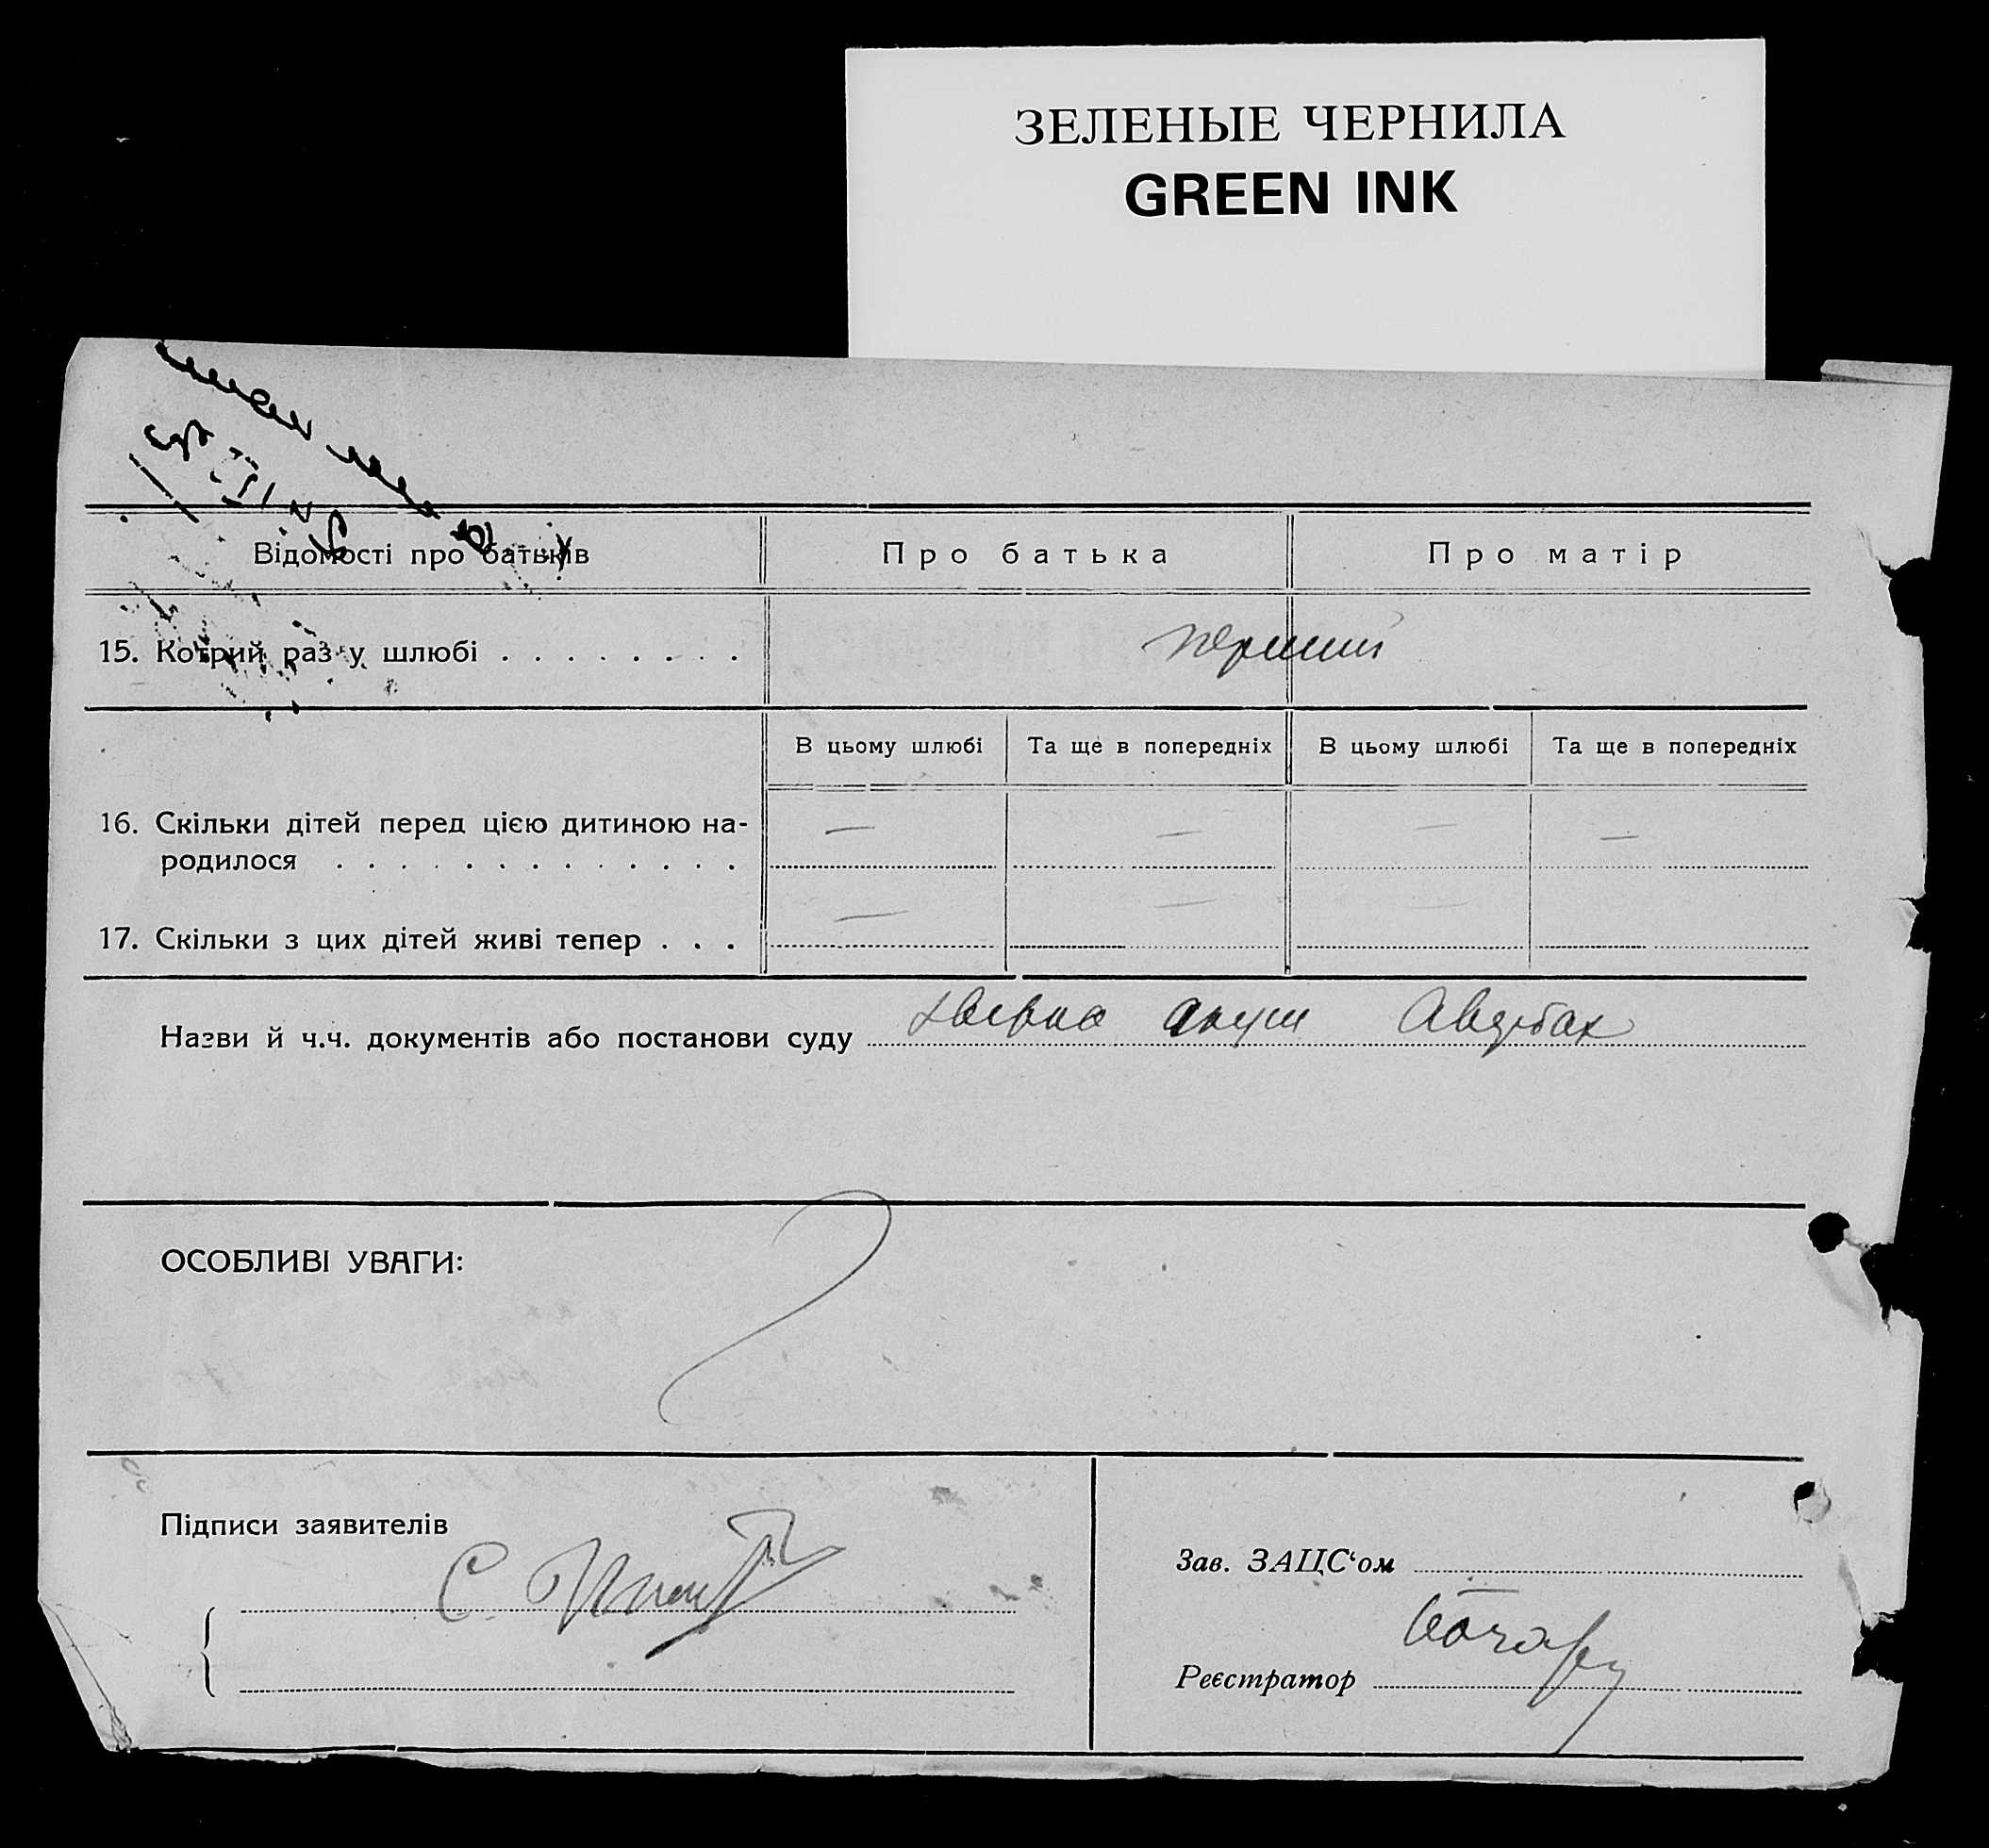 ЗЕЛЕНЫЕ ЧЕРНИЛА
GREEN INK
Відомості про батьків
Про батька
Про матір
15. Котрий раз у шлюбі . . . . . . . .
В цьому шлюбі
Та ще в попередніх
В цьому шлюбі
Та ще в попередніх
16. Скільки дітей перед цією дитиною на-
родилося . . . . . . . . . . . . .
— — — —
17. Скільки з цих дітей живі тепер . . .
— — —
Назви й ч.ч. документів або постанови суду акуш Авербах
ОСОБЛИВІ УВАГИ:
Підписи заявителів
Зав. ЗАЦС‘ом
Реєстратор